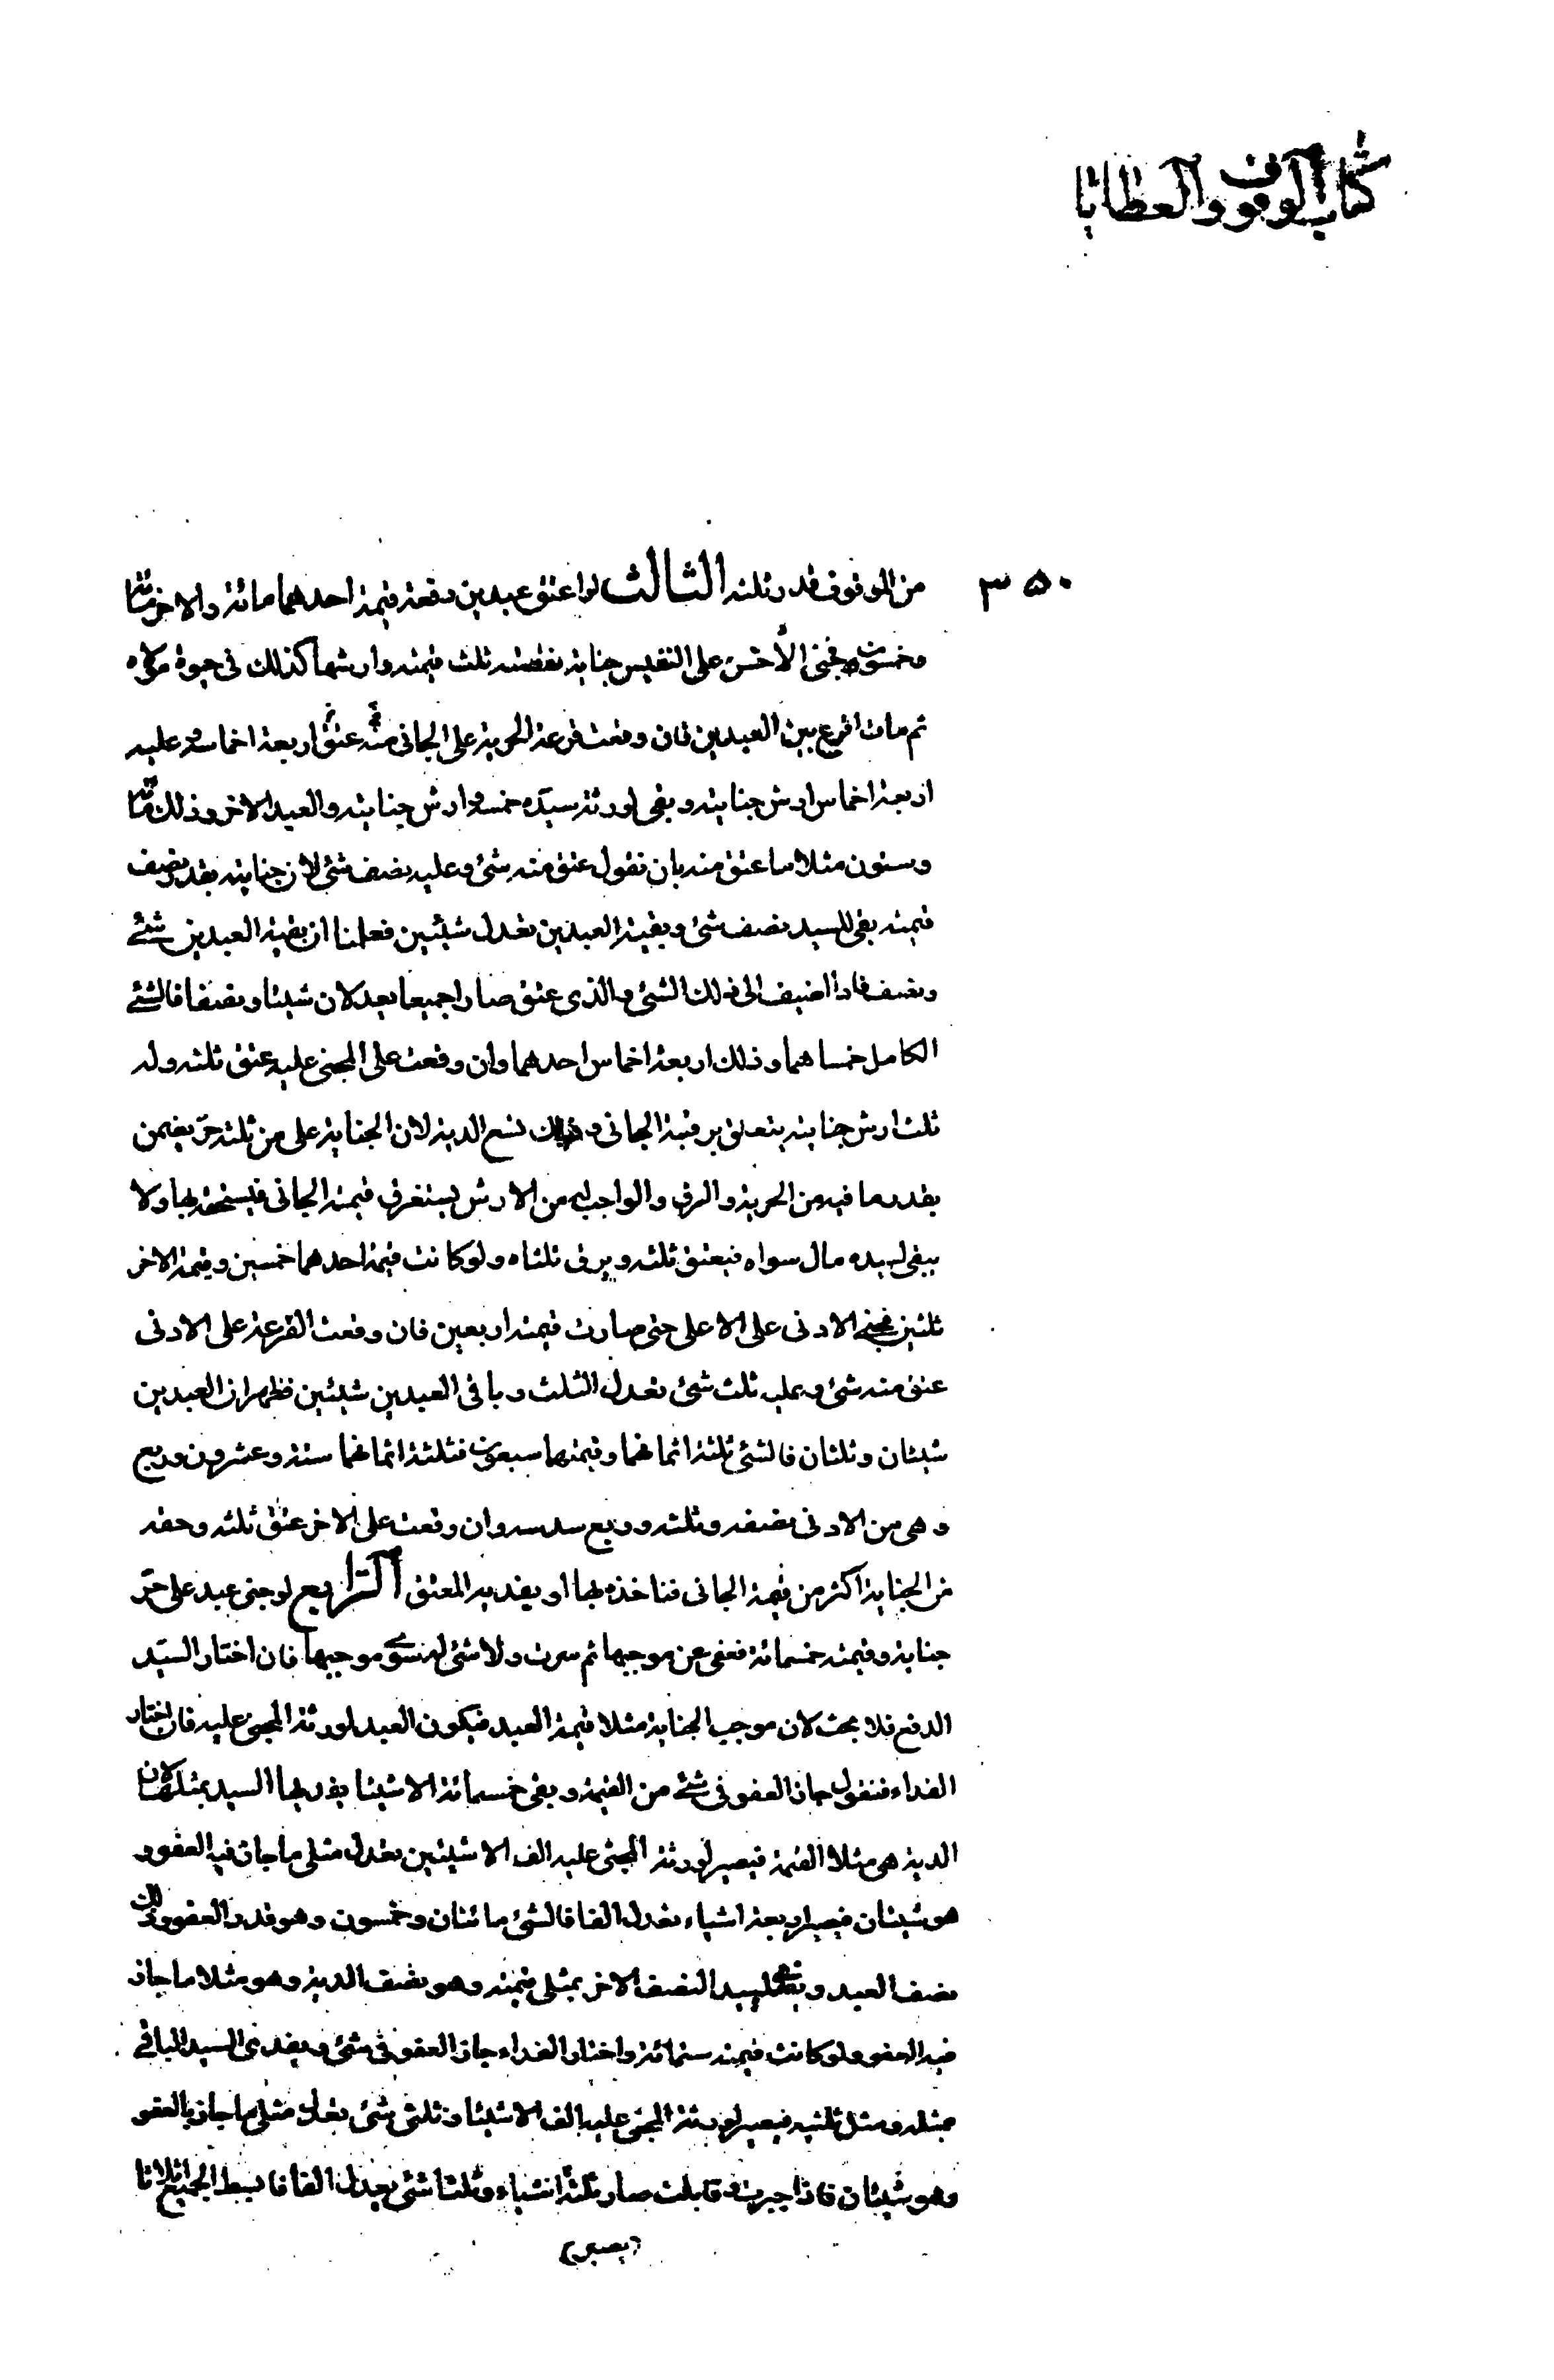 كتاب الوقوف والعطايا
٣٥٠
من الموقوف قدر ثلثه الثالث لو اعتق عبدين دفعة قيمة احدهما مائة والاخر مائة
وخمسون فجنى الأخس على النفيس جناية نقصته ثلث قيمته وارشها كذلك في حيوة مولاه
ثم مات اقرع بين العبدين فان وقعت قرعة الحرية على الجاني عتق منه اربعة اخماسه وعليه
اربعة اخماس ارش جنايته وبقى لورثة سيده خمسه وارش جنايته والعبد الاخر وذلك مائة
وستون مثلا ما عتق منه بان نقول عتق منه شئ وعليه نصف شئ لان جنايته بقدر نصف
قيمته بقى للسيد نصف شئ وبقية العبدين تعدل شيئين فعلمنا ان بقية العبدين شئ
ونصف فاذا اضيف الى ذلك الشئ الذى عتق صارا جميعا يعدلان شيئا ونصفا فالشئ
الكامل خمساهما وذلك اربعة اخماس احدهما وان وقعت على المجنى عليه عتق ثلثه وله
ثلث ارش جنايته يتعلق برقبة الجاني وذلك تسع الدية لان الجناية على من ثلثه حر يضمن
بقدر ما فيه من الحرية والرق والواجب له من الارش يستغرق قيمة الجاني فيستحقه بها ولا
يبقى لسيده مال سواه فيعتق ثلثه ويرق ثلثاه ولو كانت قيمة احدهما خمسين وقيمة الاخر
ثلثين فجنى الادنى على الاعلى حتى صارت قيمته اربعين فان وقعت القرعة على الادنى
عتق منه شئ وعليه ثلث شئ تعدل الثلث وباقي العبدين شيئين فظهر ان العبدين
شيئان وثلثان فالشئ ثلثة اثمانهما وقيمتهما سبعون فثلثة اثمانهما ستة وعشرون وربع
وهى من الادنى نصفه وثلثه وربع سدسه وان وقعت على الاخر عتق ثلثه وحقه
من الجناية اكثر من قيمة الجاني فتاخذه بها او يفديه المعتق الرابع لو جنى عبد على حر
جناية وقيمته خمسمائة فعفى عن موجبها ثم سرت ولا شئ له سوى موجبها فان اختار السيد
الدفع فلا بحث لان موجب الجناية مثلا قيمة العبد فيكون العبد لورثة المجنى عليه فان اختار
الفداء فنقول جاز العفو في شئ من القيمة وبقى خمسمائة الا شيئا يفديها السيد بمثلها لان
الدية هى مثلا القيمة فيصير لورثة المجنى عليه الف الا شيئين يعدل مثلى ما جاز فيه العفو و
هو شيئان فيصير اربعة اشياء تعدل الفا فالشئ مائتان وخمسون وهو قدر العفو وذلك
نصف العبد و السيد النصف الاخر بمثلى قيمته وهو نصف الدية وهو مثلا ما جاز
فيه العفو ولو كانت قيمته ستمائة واختار الفداء جاز العفو في شئ ويفدى السيد الباقي
بمثله ومثل ثلثيه فيصير لورثة المجنى عليه الف الا شيئا وثلثى شئ يعدل مثلى ما جاز بالعفو
وهو شيئان فاذا جبرت وقابلت صار ثلثة اشياء وثلثا شئ يعدل الفا فابسط الجميع اثلاثا
(يصير)